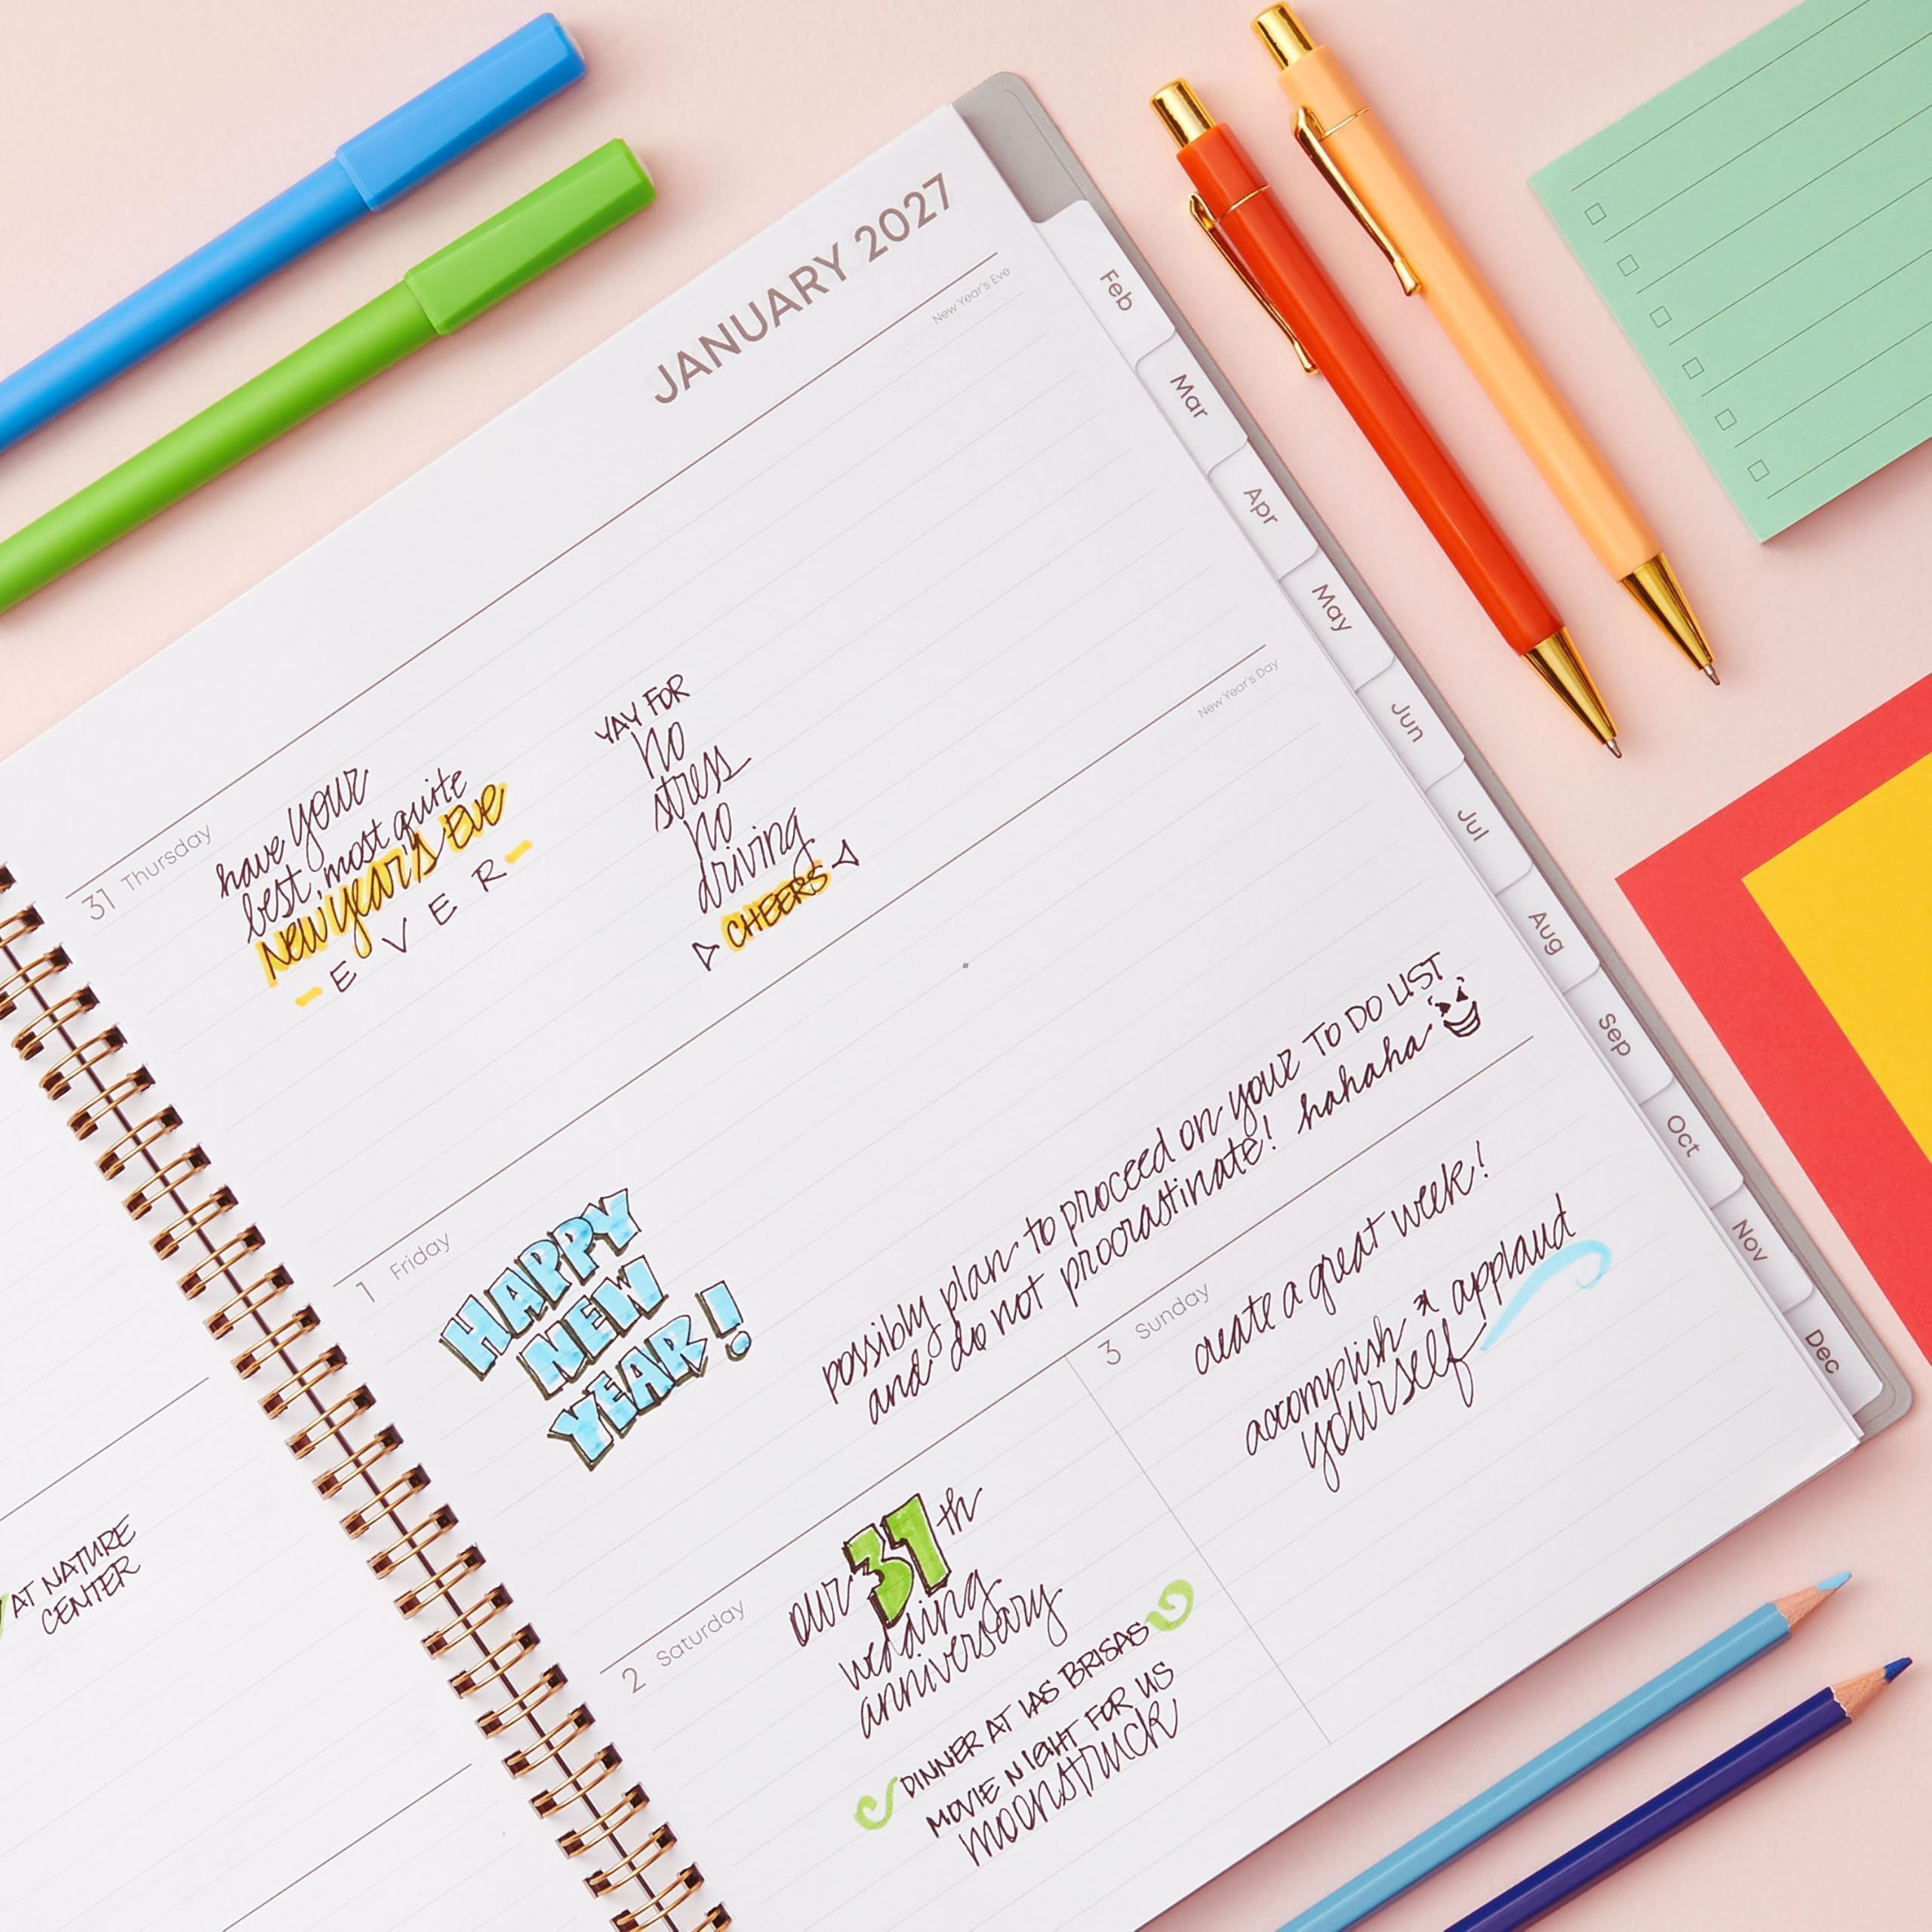 JANUARY 2027
New Year's Eve
31 Thursday
have your
best, most quite
New Year's Eve
- EVER -
YAY FOR
no
stress
no
driving
CHEERS
New Year's Day
1 Friday
HAPPY
NEW
YEAR!
possibly plan to proceed on your TO DO LIST
and do not procrastinate! hahaha
2 Saturday
our 31th
wedding
anniversary
DINNER AT LAS BRISAS
MOVIE NIGHT FOR US
moonstruck
3 Sunday
create a great week!
accomplish * applaud
yourself
AT NATURE
CENTER
Feb
Mar
Apr
May
Jun
Jul
Aug
Sep
Oct
Nov
Dec